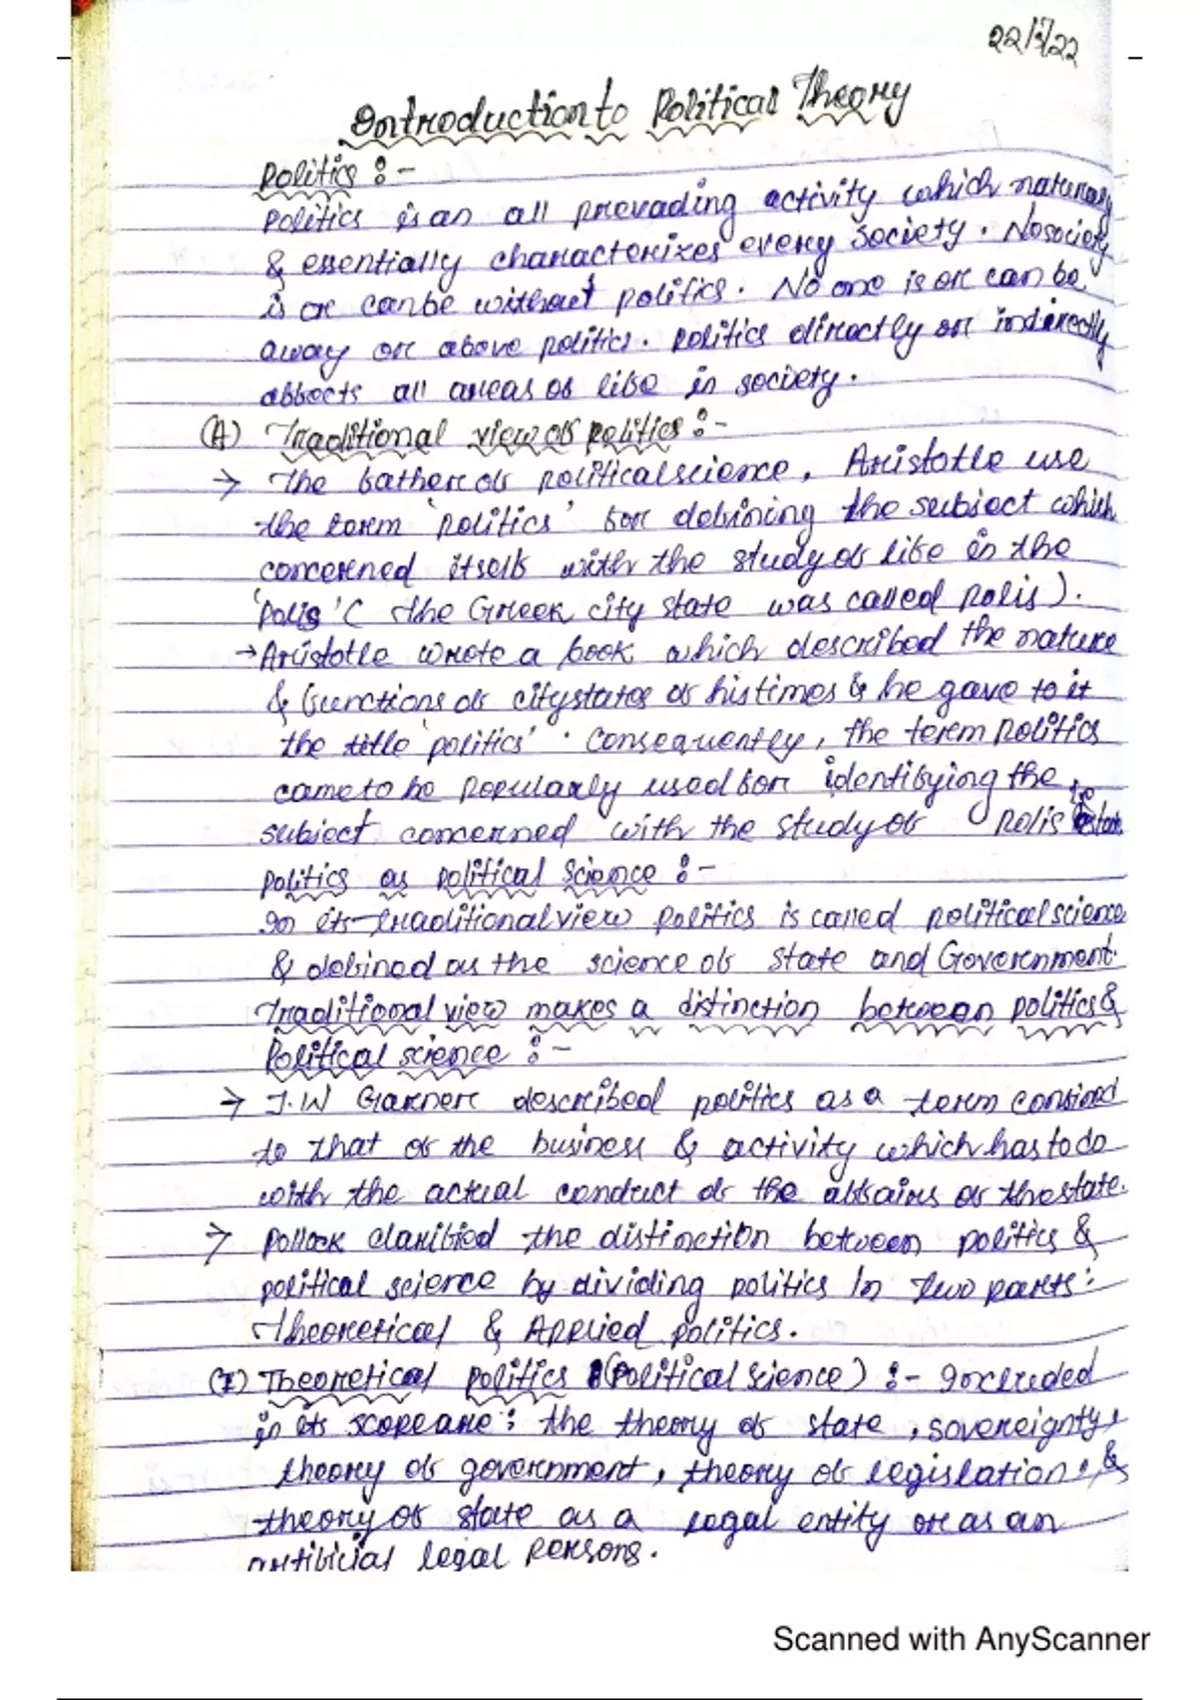 22/1/22
Introduction to Political Theory
Politics :-
politics is an all prevading activity which naturaly
& essentially characterizes every society. No society
is or can be without politics. No one is or can be
away or above politics. politics directly or indirectly
affects all areas of life in society.
(A) Traditional view of politics :-
→ The father of political science, Aristotle use
the term 'politics' for defining the subject which
concerned itself with the study of life in the
'polis' (the Greek city state was called polis).
→ Aristotle wrote a book which described the nature
& functions of city states of his times & he gave to it
the title 'politics'. Consequently, the term politics
came to be popularly used for identifying the
subject concerned with the study of polis state
politics as political Science :-
In its traditional view politics is called political science
& defined as the science of State and Government.
Traditional view makes a distinction between politics &
Political science :-
→ J.W Garner described politics as a term confined
to that of the business & activity which has to do
with the actual conduct of the affairs of the state.
→ pollock clarified the distinction between politics &
political science by dividing politics in two parts:
Theoretical & Applied politics.
(I) Theoretical politics (Political Science) :- Included
in its scope are: the theory of state, sovereignty,
theory of government, theory of legislation, &
theory of state as a legal entity or as an
artificial legal persons.
Scanned with AnyScanner